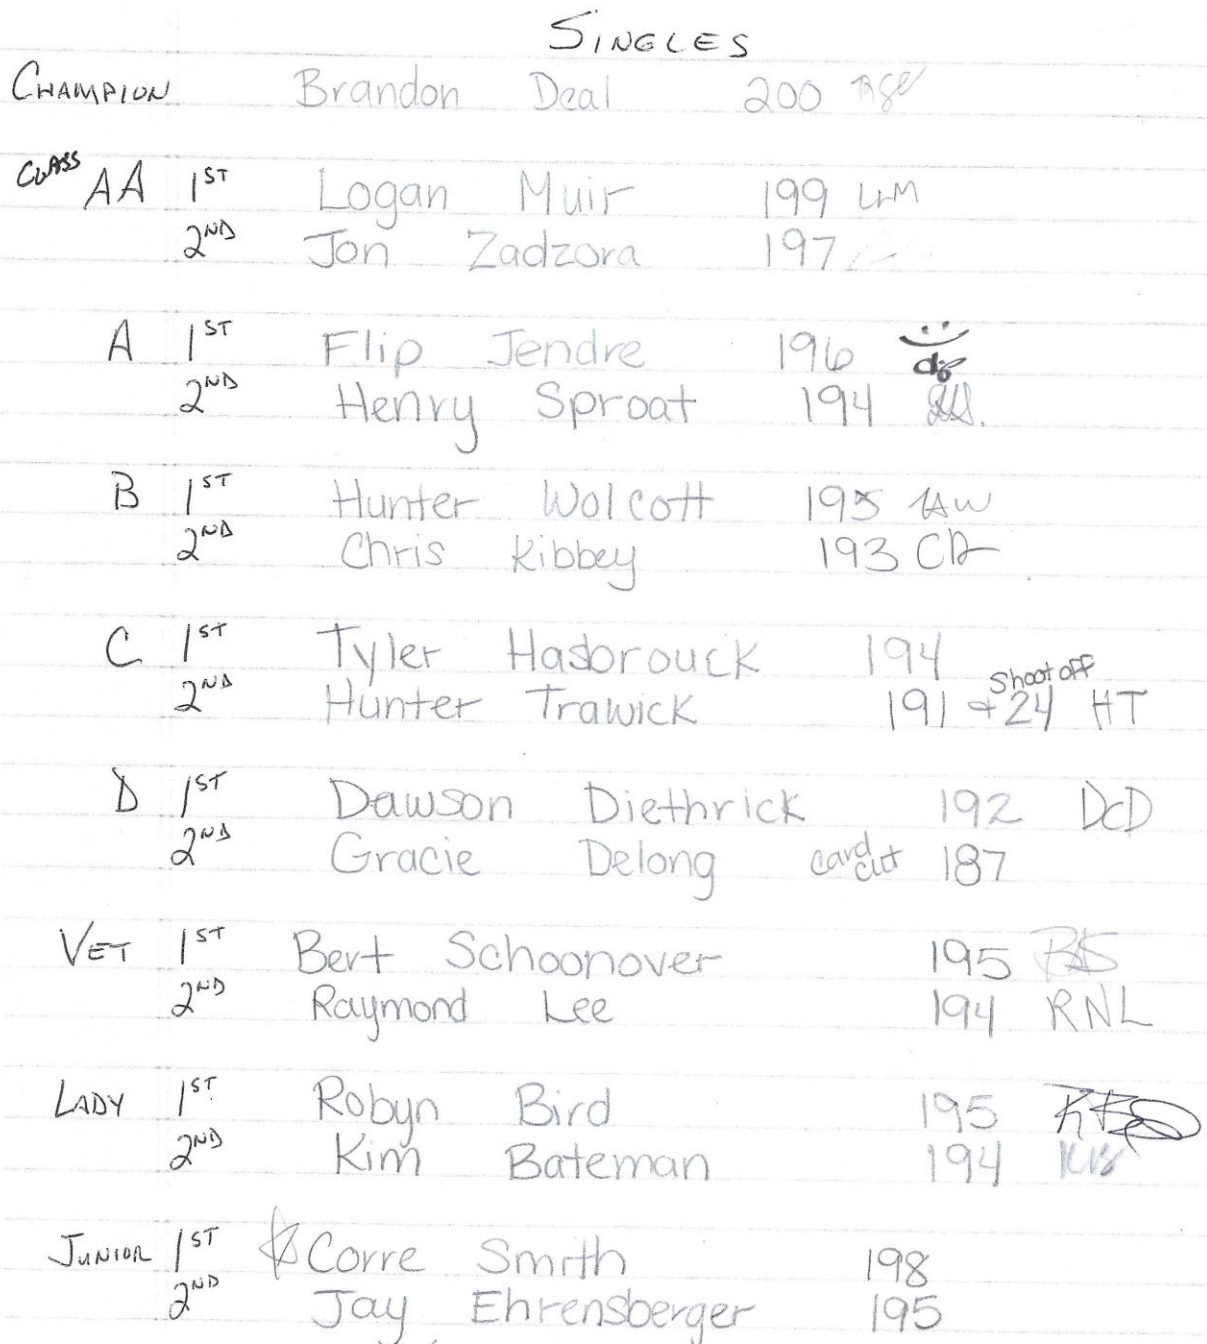 SINGLES
CHAMPION Brandon Deal 200
CLASS AA 1ST Logan Muir 199 LLM
2ND Jon Zadzora 197
A 1ST Flip Jendre 196
2ND Henry Sproat 194
B 1ST Hunter Wolcott 195 HAW
2ND Chris Kibbey 193
C 1ST Tyler Hasbrouck 194
2ND Hunter Trawick 191 + 24 Shoot off HT
D 1ST Dawson Diethrick 192 DCD
2ND Gracie Delong card cut 187
VET 1ST Bert Schoonover 195 BS
2ND Raymond Lee 194 RNL
LADY 1ST Robyn Bird 195
2ND Kim Bateman 194 KB
JUNIOR 1ST Corre Smith 198
2ND Jay Ehrensberger 195